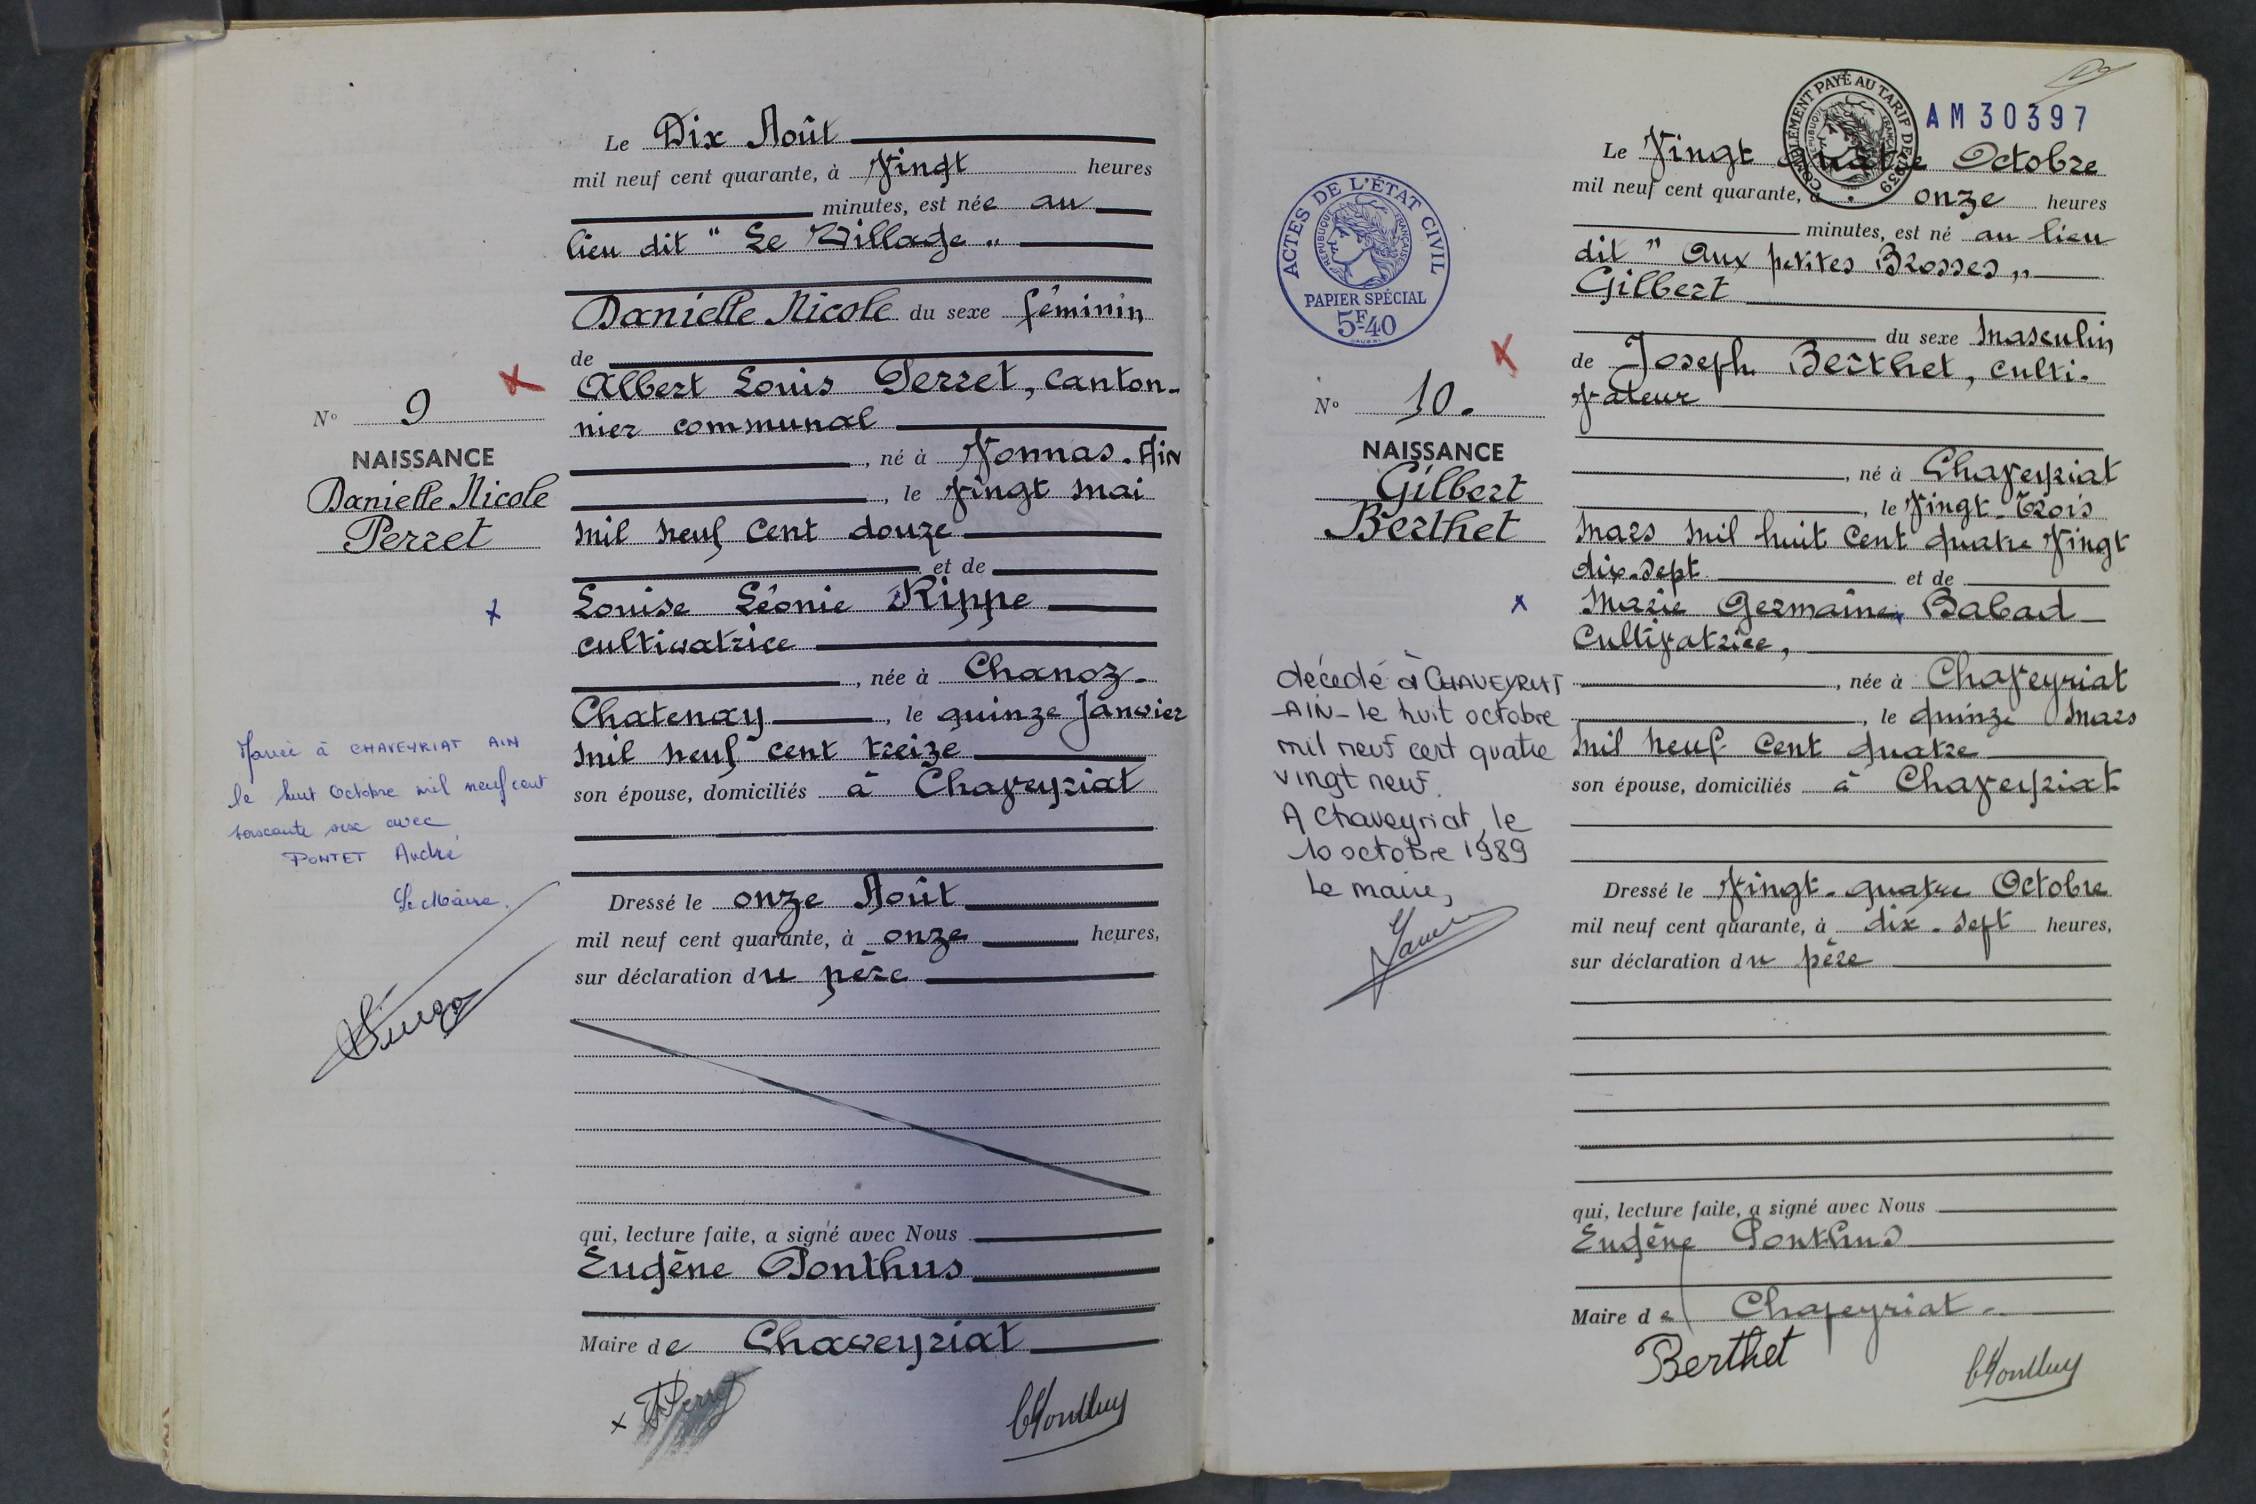 Le Dix Août
mil neuf cent quarante, à Vingt heures
minutes, est née au
lieu dit " Le Village "
Danielle Nicole du sexe féminin
de
Albert Louis Perret, canton-
nier communal
, né à Vonnas. Ain
, le Vingt mai
mil neuf cent douze
et de
Louise Léonie Rippe
cultivatrice
, née à Chanoz-
Chatenay, le quinze Janvier
mil neuf cent treize
son épouse, domiciliés à Chaveyriat
Dressé le onze Août
mil neuf cent quarante, à onze heures,
sur déclaration du père
qui, lecture faite, a signé avec Nous
Eugène Ponthus
Maire de Chaveyriat
x APerret
EPonthus
N° 9
NAISSANCE
Danielle Nicole
Perret
Mariée à CHAVEYRIAT AIN
le huit Octobre mil neuf cent
soixante six avec
PONTET André
Le Maire.
AM30397
COMPLÉMENT PAYÉ AU TARIF DE 1939
Le Vingt quatre Octobre
mil neuf cent quarante, à onze heures
minutes, est né au lieu
dit " Aux petites Brosses "
Gilbert
du sexe masculin
de Joseph Berthet, culti-
vateur
, né à Chaveyriat
, le Vingt-Trois
mars mil huit cent quatre Vingt
dix-sept et de
Marie Germaine Babad
Cultivatrice,
, née à Chaveyriat
, le quinze Mars
mil neuf cent quatre
son épouse, domiciliés à Chaveyriat
Dressé le Vingt-quatre Octobre
mil neuf cent quarante, à dix-sept heures,
sur déclaration du père
qui, lecture faite, a signé avec Nous
Eugène Ponthus
Maire de Chaveyriat
Berthet
EPonthus
ACTES DE L'ÉTAT CIVIL
RÉPUBLIQUE FRANÇAISE
PAPIER SPÉCIAL
5F40
N° 10.
NAISSANCE
Gilbert
Berthet
décédé à CHAVEYRIAT
-AIN- le huit octobre
mil neuf cent quatre
vingt neuf.
A Chaveyriat, le
10 octobre 1989
Le maire,